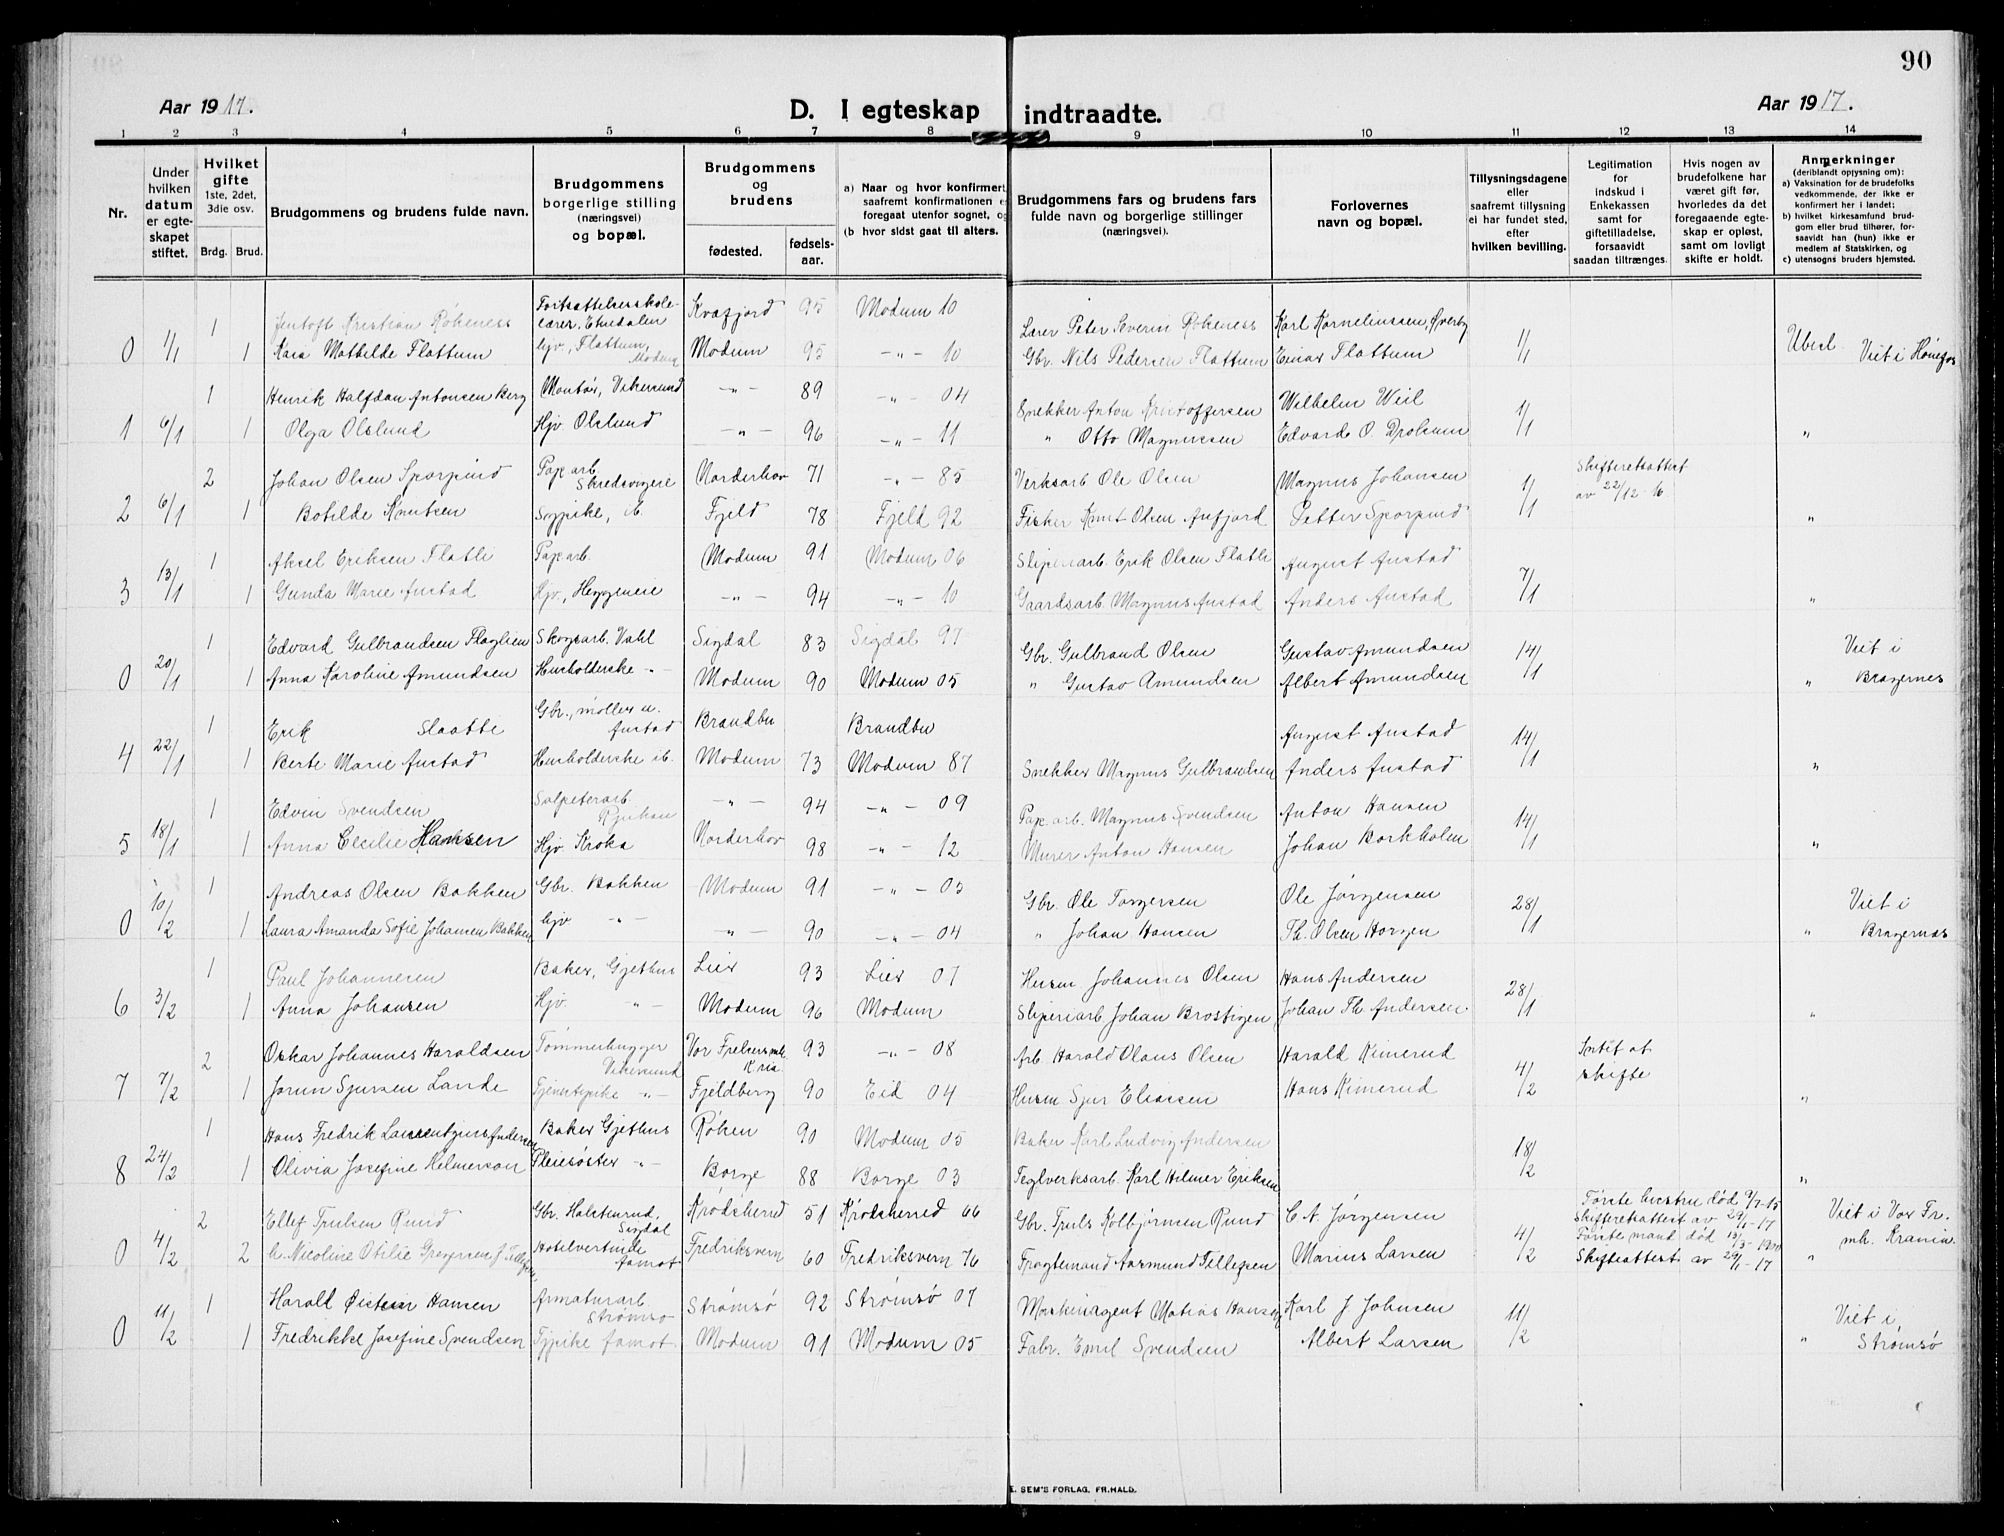 90
Aar 1917.
D. I egteskap indtraadte.
Aar 1917.
1 2 3 4 5 6 7 8 9 10 11 12 13 14
Nr.
Under hvilken datum er egteskapet stiftet.
Hvilket gifte 1ste, 2det, 3die osv.
Brdg. Brud.
Brudgommens og brudens fulde navn.
Brudgommens borgerlige stilling (næringsvei) og bopæl.
Brudgommens og brudens
fødested. fødselsaar.
a) Naar og hvor konfirmert, saafremt konfirmationen er foregaat utenfor sognet, og
(b hvor sidst gaat til alters.
Brudgommens fars og brudens fars fulde navn og borgerlige stillinger (næringsvei).
Forlovernes navn og bopæl.
Tillysningsdagene eller saafremt tillysning ei har fundet sted, efter hvilken bevilling.
Legitimation for indskud i Enkekassen samt for giftetilladelse, forsaavidt saadan tiltrænges.
Hvis nogen av brudefolkene har været gift før, hvorledes da det foregaaende egteskap er opløst, samt om lovligt skifte er holdt.
Anmerkninger (deriblandt opjysning om):
a) Vaksination for de brudefolks vedkommende, der ikke er konfirmert her i landet;
b) hvilket kirkesamfund brudgom eller brud tilhører, forsaavidt han (hun) ikke er medlem af Statskirken, og
c) utensogns bruders hjemsted.
1 Jentoft Kristian Rökeness Fortsættelsesskolelærer, Etnedalen Kvæfjord 95 Modum 10 Lærer Peter Severin Rökeness Karl Korneliussen, Øverby
0 1/1 1 Kara Mathilde Flattum hjv, Flattum, Modum Modum 95 -"- 10 Gbr. Nils Pedersen Flattum Einar Flattum 1/1 Ubesl. Viet i Hönefos
1 Henrik Halfdan Antonsen Berg Montör, Vikersund -"- 89 -"- 04 Snekker Anton Kristoffersen Wilhelm Weil
1 6/1 1 Olga Olslund Hjv Olslund -"- 96 -"- 11 " Otto Magnussen Edvard O. Drolsum 1/1 "
2 Johan Olsen Sporpind Pap. arb. Skredsvigeie Norderhov 71 -"- 85 Verksarb Ole Olsen Magnus Johansen Skifteretsattest
2 6/1 1 Botilde Knutsen Sypike, ib. Fjeld 78 Fjeld 92 Fisker Knut Olsen Aufjord Petter Sporpind 1/1 av 22/12-16 "
1 Aksel Eriksen Flatli Pap. arb. Modum 91 Modum 06 Sliperiarb. Erik Olsen Flatli August Austad
3 13/1 1 Gunda Marie Austad Hjv, Heggeneie -"- 94 -"- 10 Gaardsarb. Magnus Austad Anders Austad 7/1 "
1 Edvard Gulbrandsen Flaglien Skogsarb. Vahl Sigdal 83 Sigdal 97 Gbr. Gulbrand Olsen Gustav Amundsen Viet i
0 20/1 1 Anna Karoline Amundsen Husholderske -"- Modum 90 Modum 05 " Gustav Amundsen Albert Amundsen 14/1 " Bragernes
1 Erik Slaatte Gbr., möller u. Austad Brandbu Brandbu August Austad
4 22/1 1 Berte Marie Austad Husholderske ib. Modum 73 Modum 87 Snekker Magnus Gulbrandsen Anders Austad 14/1 "
1 Edvin Svendsen Salpeterarb. Rjukan -"- 94 -"- 09 Pap. arb. Magnus Svendsen Anton Hansen
5 18/1 1 Anna Cecilie Hansen Hjv. Kroka Norderhov 98 -"- 12 Murer Anton Hansen Johan Borkholm 14/1 "
1 Andreas Olsen Bakken Gbr. Bakken Modum 91 -"- 05 Gbr. Ole Torgersen Ole Jörgensen Viet i
0 10/2 1 Laura Amanda Sofie Johansen Bakken hjv -"- -"- 90 -"- 04 " Johan Hansen Th. Olsen Horgen 28/1 " Bragernes
1 Paul Johannesen Baker, Gjethus Lier 93 Lier 07 Husm Johannes Olsen Hans Andersen
6 3/2 1 Anna Johansen Hjv. -"- Modum 96 Modum Sliperiarb Johan Brostigen Johan Th. Andersen 28/1 "
2 Oskar Johannes Haraldsen Tömmerhugger Vikersund Vor Frelsers mh. Kria 93 -"- 08 Arb. Harald Olaus Olsen Harald Kimerud Intet at
7 7/2 1 Jorun Sjursen Lande Tjenestepike -"- Fjeldberg 90 Eid 04 Husm Sjur Eliassen Hans Kimerud 4/2 skifte "
1 Hans Fredrik Laurentzius Andersen Baker Gjethus Röken 90 Modum 05 Baker Karl Ludvig Andersen
8 24/2 1 Olivia Josefine Helmersen Pleiesöster -"- Borge 88 Borge 03 Teglverksarb. Karl Hilmer Eriksen 18/2 "
2 Ellef Trulsen Rund Gbr. Halstenrud, Sigdal Krödsherred 51 Krödsherred 66 Gbr. Truls Kolbjörnsen Rund C. A. Jörgensen Förste hustru död 9/7-15 Skifteretsattest av 29/1-17 Viet i Vor Fr.
0 4/2 2 Nicoline Otilie Gregersen f. Tellefsen Hotelvertinde Fredriksvern 60 Fredriksvern 76 Fragtemand Aasmund Tellefsen Marius Larsen 4/2 Förste mand död 13/3-1900 Skifteattest av 29/1-17 " mh. Krania
1 Harald Öistein Hansen Armaturarb Strömsö Strömsö 92 Strömsö 07 Maskinagent Matias Hansen Karl J Johnsen Viet i
0 11/2 1 Fredrikke Josefine Svendsen Tjpike Modum 91 Modum 05 Fabr. Emil Svendsen Albert Larsen 11/2 " Strömsö
E. SEM'S FORLAG, FR.HALD.